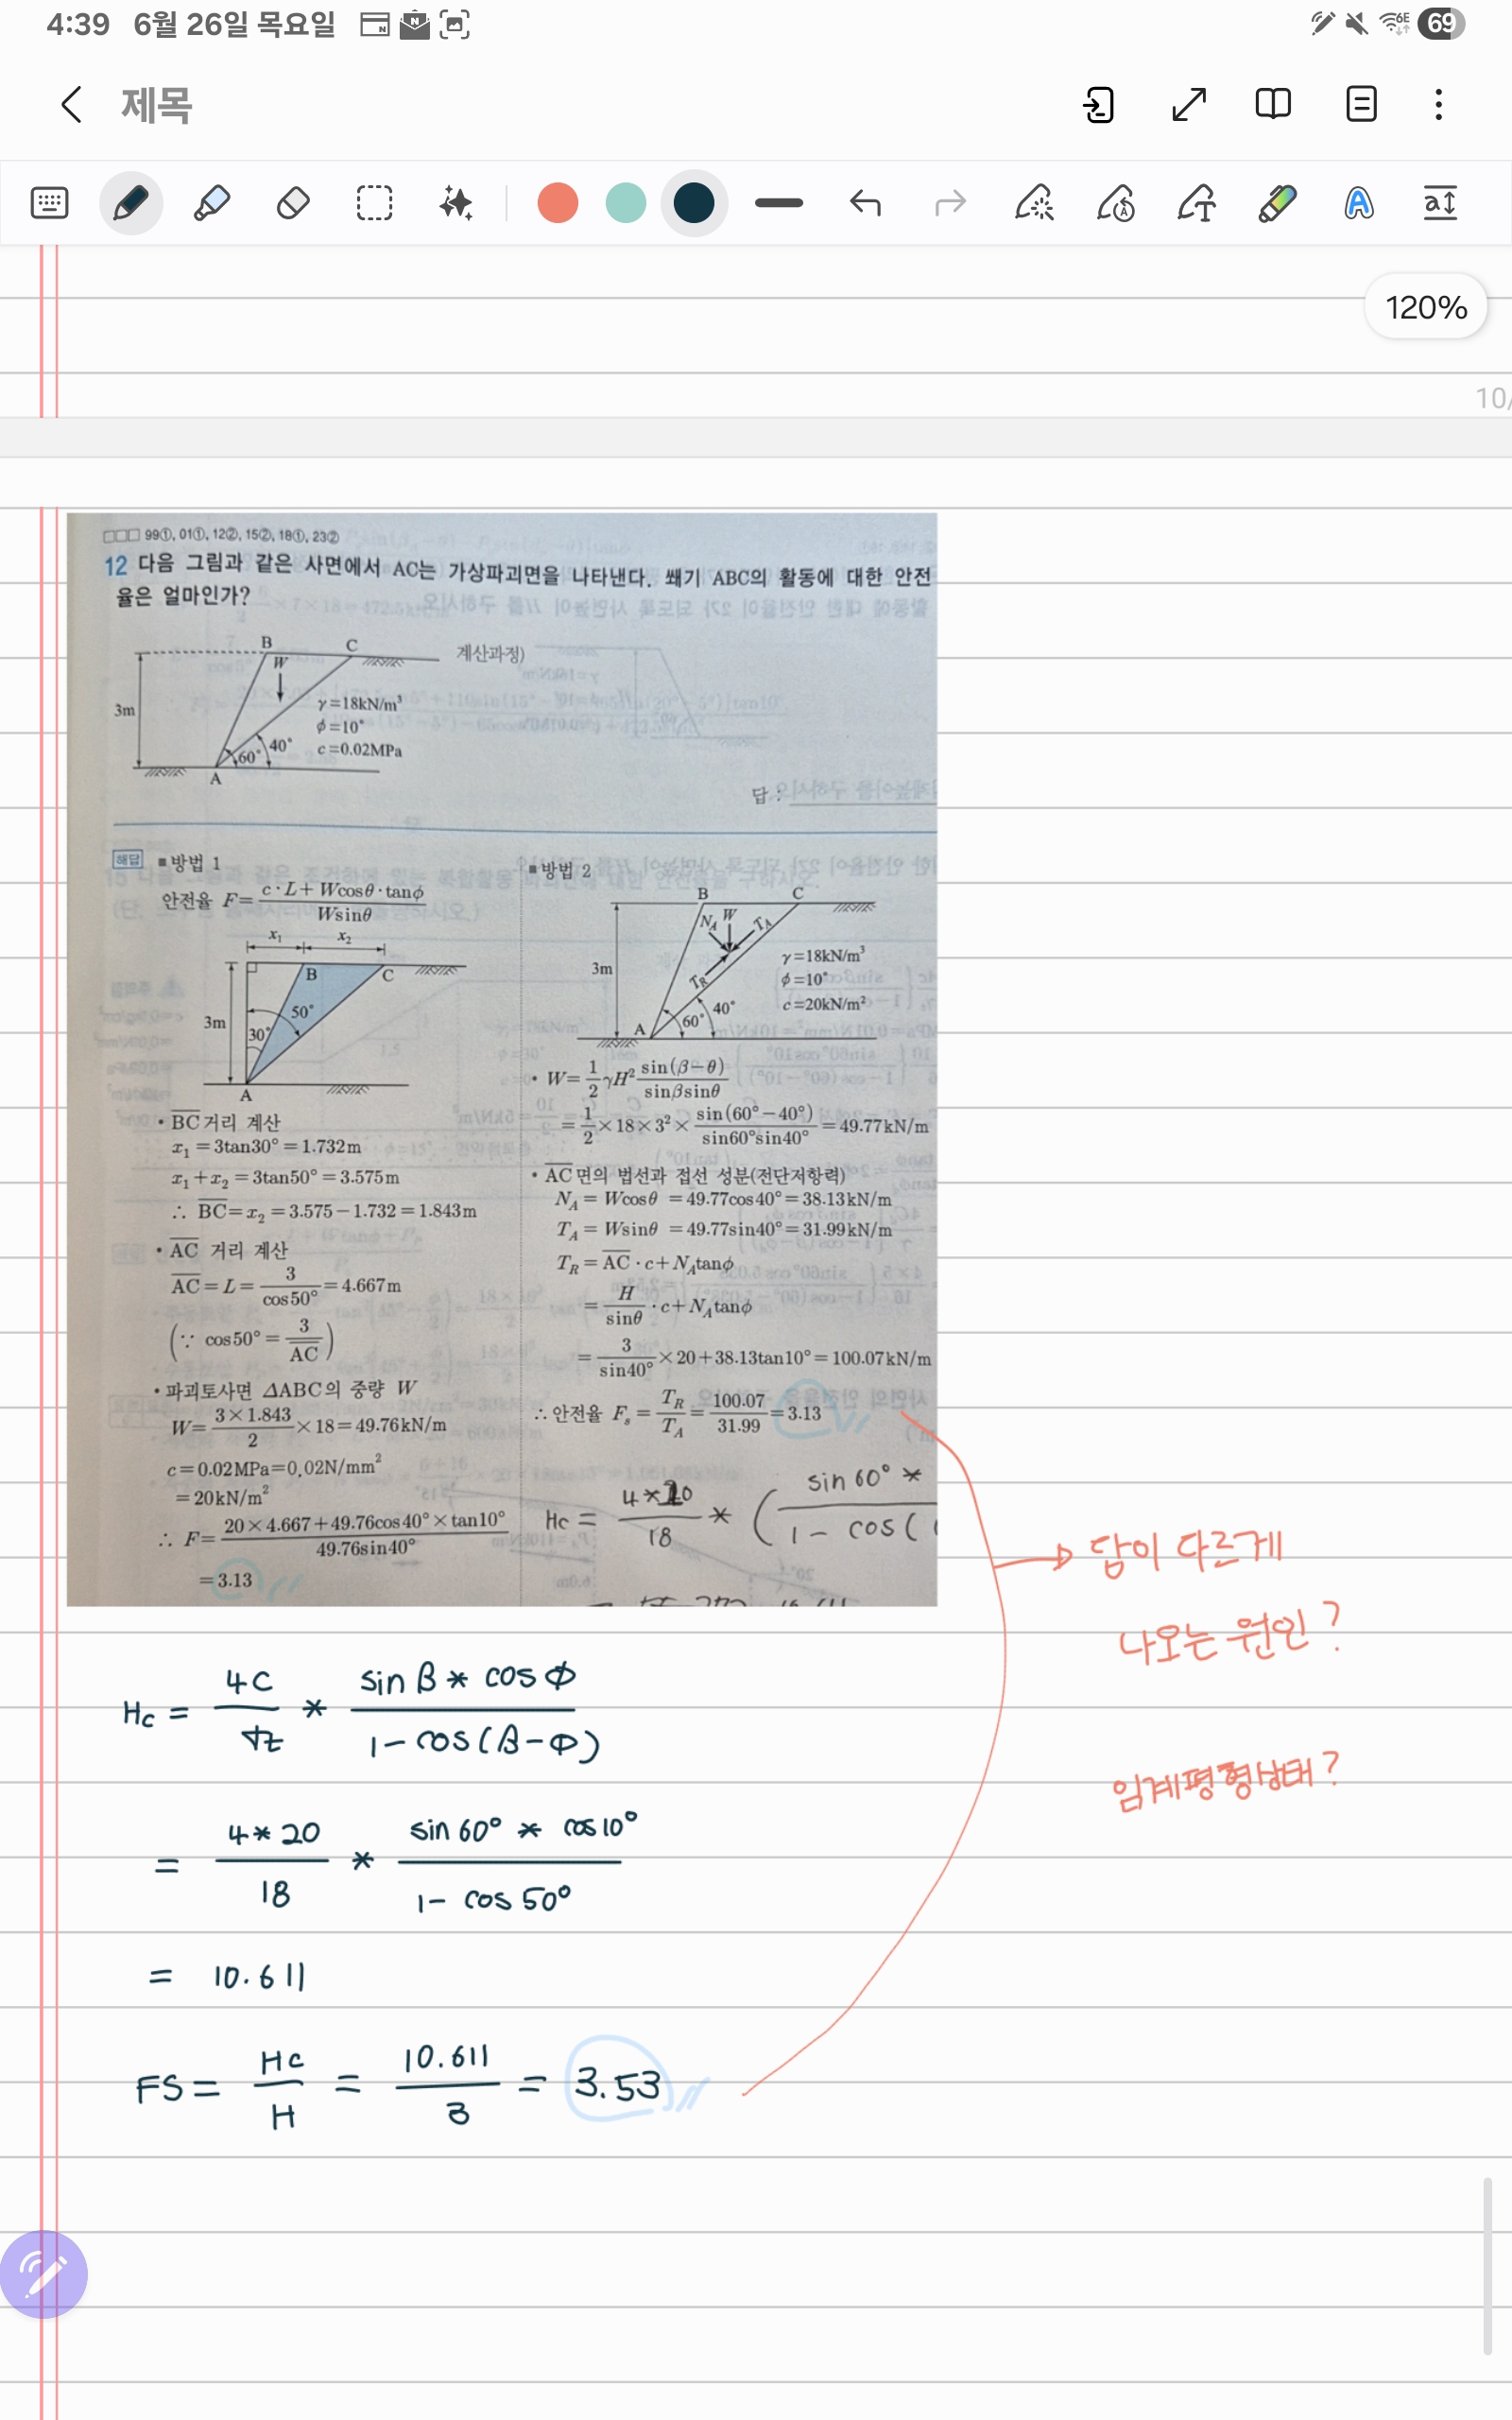 4:39 6월 26일 목요일
6E 69
제목
120%
10/
99①, 01①, 12②, 15②, 18①, 23②
12 다음 그림과 같은 사면에서 AC는 가상파괴면을 나타낸다. 쐐기 ABC의 활동에 대한 안전
율은 얼마인가?
B C
W
3m
γ=18kN/m³
φ=10°
c=0.02MPa
60° 40°
A
계산과정)
답 :
해답 ■ 방법 1
안전율 F= (c·L+Wcosθ·tanφ) / (Wsinθ)
x₁ x₂
B C
3m
50°
30°
A
• BC거리 계산
x₁=3tan30°=1.732m
x₁+x₂=3tan50°=3.575m
∴ BC=x₂=3.575−1.732=1.843m
• AC 거리 계산
AC=L= 3/cos50° =4.667m
(∵ cos50°= 3/AC)
• 파괴토사면 ΔABC의 중량 W
W= (3×1.843)/2 ×18=49.76kN/m
c=0.02MPa=0.02N/mm²
=20kN/m²
∴ F= (20×4.667+49.76cos40°×tan10°) / (49.76sin40°)
=3.13
■ 방법 2
B C
N_A W T_A
3m
T_R
γ=18kN/m³
φ=10°
c=20kN/m²
A 60° 40°
• W= 1/2 γH² sin(β−θ)/(sinβsinθ)
= 1/2 ×18×3²× sin(60°−40°)/(sin60°sin40°) =49.77kN/m
• AC면의 법선과 접선 성분(전단저항력)
N_A=Wcosθ =49.77cos40°=38.13kN/m
T_A=Wsinθ =49.77sin40°=31.99kN/m
T_R=AC·c+N_A tanφ
= H/sinθ ·c+N_A tanφ
= 3/sin40° ×20+38.13tan10°=100.07kN/m
∴ 안전율 F_s= T_R/T_A = 100.07/31.99 =3.13
Hc = 4*20/18 * ( sin 60° * / 1 - cos (
Hc = 4C/γt * sin β * cos φ / 1 - cos (β-φ)
= 4*20/18 * sin 60° * cos 10° / 1 - cos 50°
= 10.611
FS = Hc/H = 10.611/3 = 3.53
답이 다르게
나오는 원인?
임계평형상태?